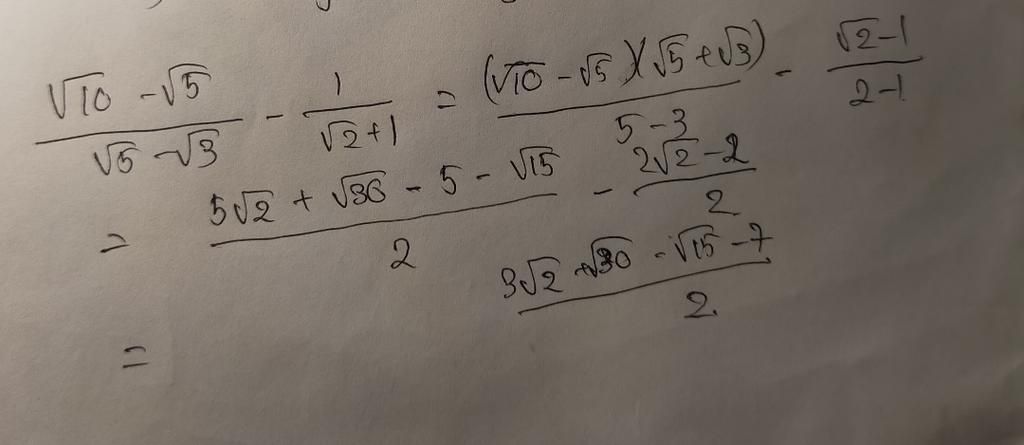 (√10 - √5)/(√5 - √3) - 1/(√2+1) = (√10 - √5)(√5 + √3)/(5-3) - (√2-1)/(2-1)
= (5√2 + √30 - 5 - √15)/2 - (2√2-2)/2
= (3√2 + √30 - √15 - 7)/2